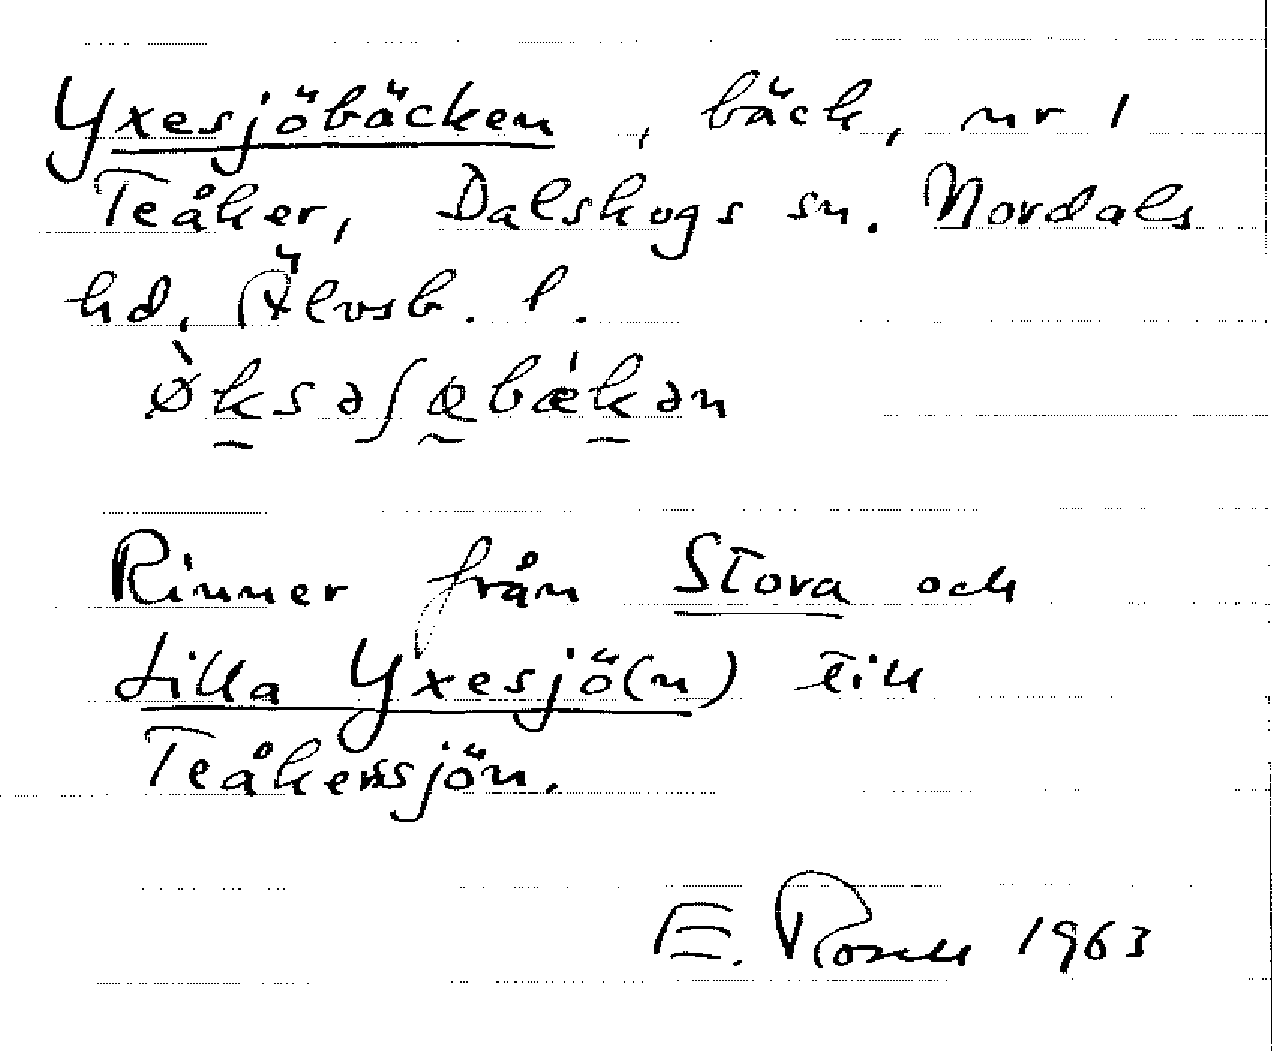 Yxesjöbäcken, bäck, nr 1
Teåker, Dalskogs sn. Nordals
hd, Älvsb. l.
ø̀ksəʃœbǽkən
Rinner från Stora och
Lilla Yxesjö(n) till
Teåkerssjön.
E. 1963